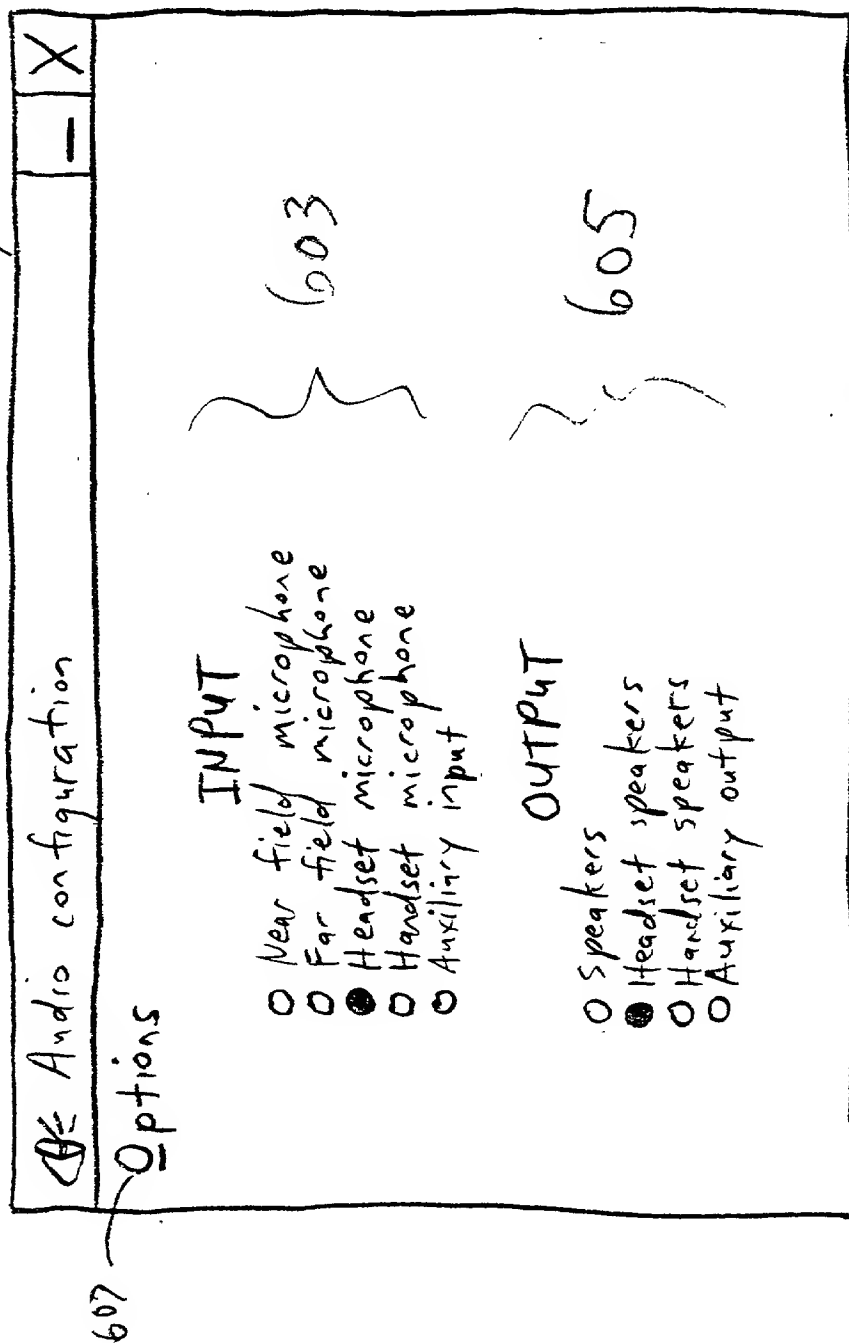 Audio configuration _ X
607
Options
INPUT
Near field microphone
Far field microphone
Headset microphone
Handset microphone
Auxiliary input
603
OUTPUT
Speakers
Headset speakers
Handset speakers
Auxiliary output
605